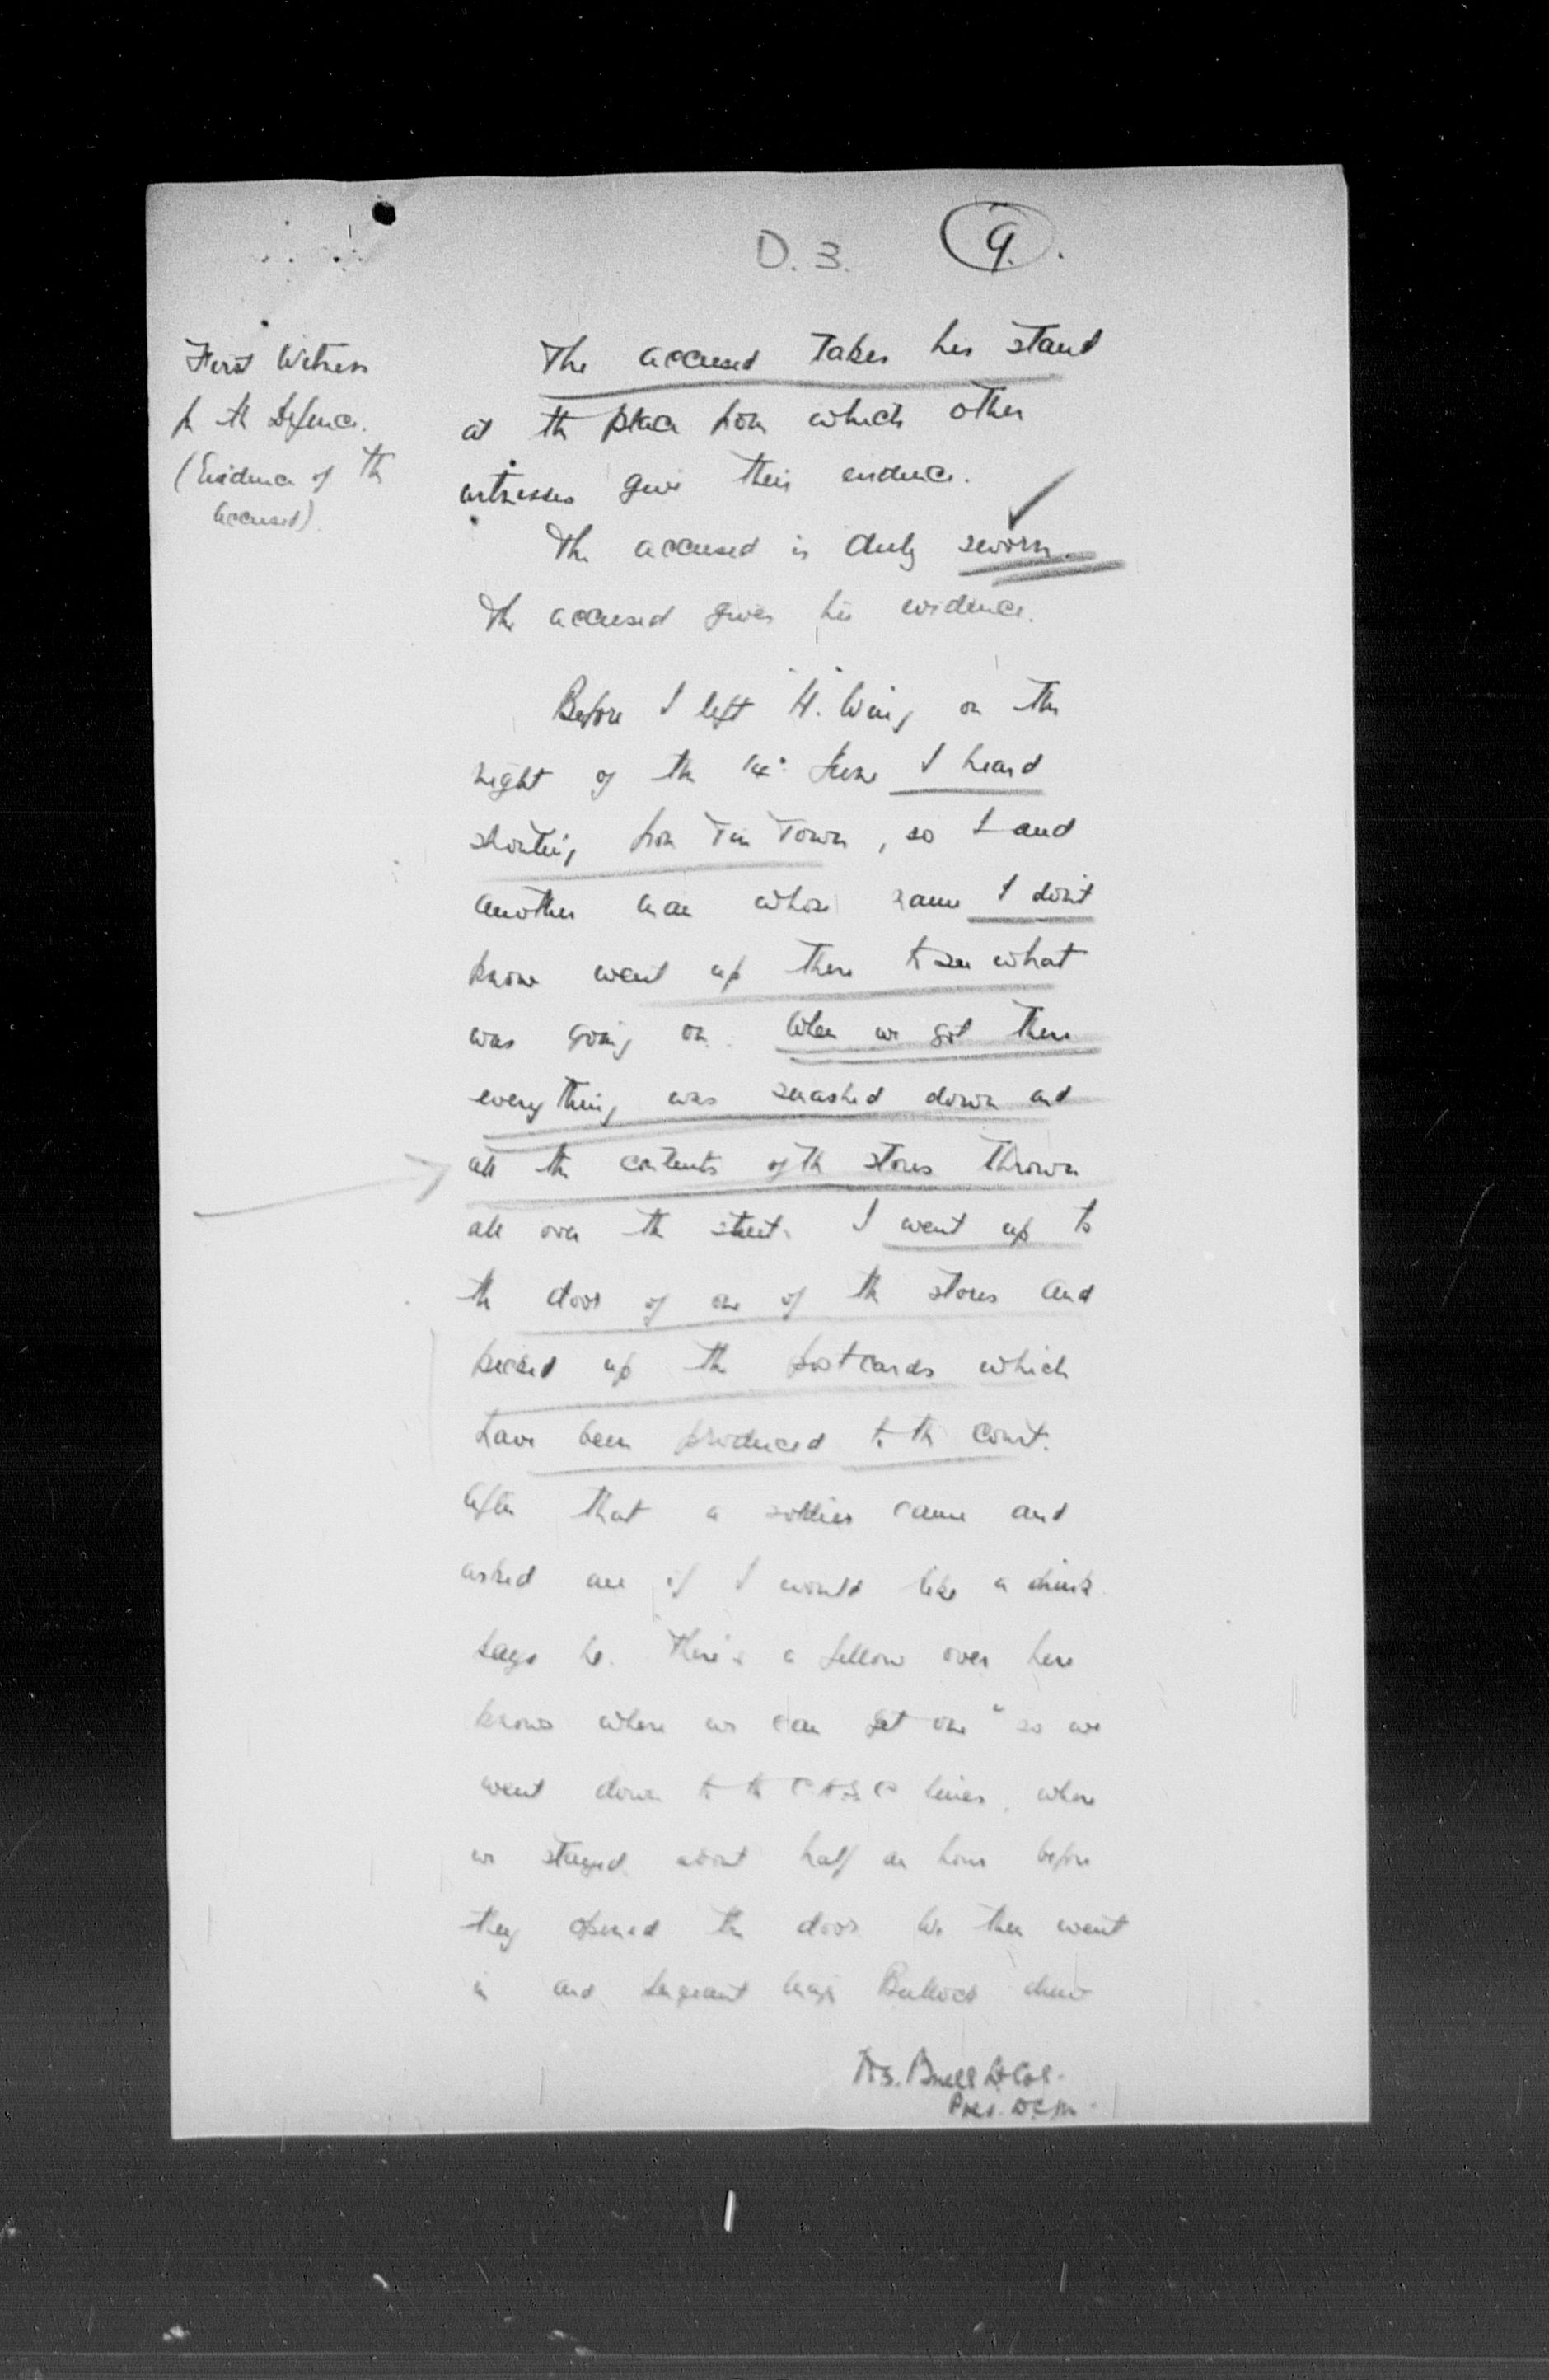 D. 3.
9.
First Witness
for the Defence.
(Evidence of the
Accused).
The accused takes his stand
at the place from which other
witnesses give their evidence.
The accused is duly sworn.
The accused gives his evidence.
Before I left "H" Wing on the
night of the June I heard
shouting from Tin Town, so I and
another man whose name I don't
know went up there to see what
was going on. When we got there
everything was smashed down and
all the contents of the stores thrown
all over the street. I went up to
the door of one of the stores and
picked up the postcards which
have been produced to the Court.
After that a soldier came and
asked me if I would like a drink
says he. There's a fellow over here
knows where we can get one" so we
went down to the lines, where
we stayed about half an hour before
they opened the door. We then went
in and Sergeant Major Bullock drew
Lt Col.
Pres. DCM.